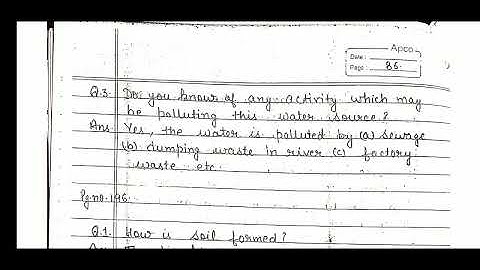 Apco
Date :
Page : 86
Q.3. Do you know of any activity which may
be polluting this water source?
Ans. Yes, the water is polluted by (a) sewage
(b) dumping waste in river (c) factory
waste etc.
Pg.no.196.
Q.1. How is soil formed?